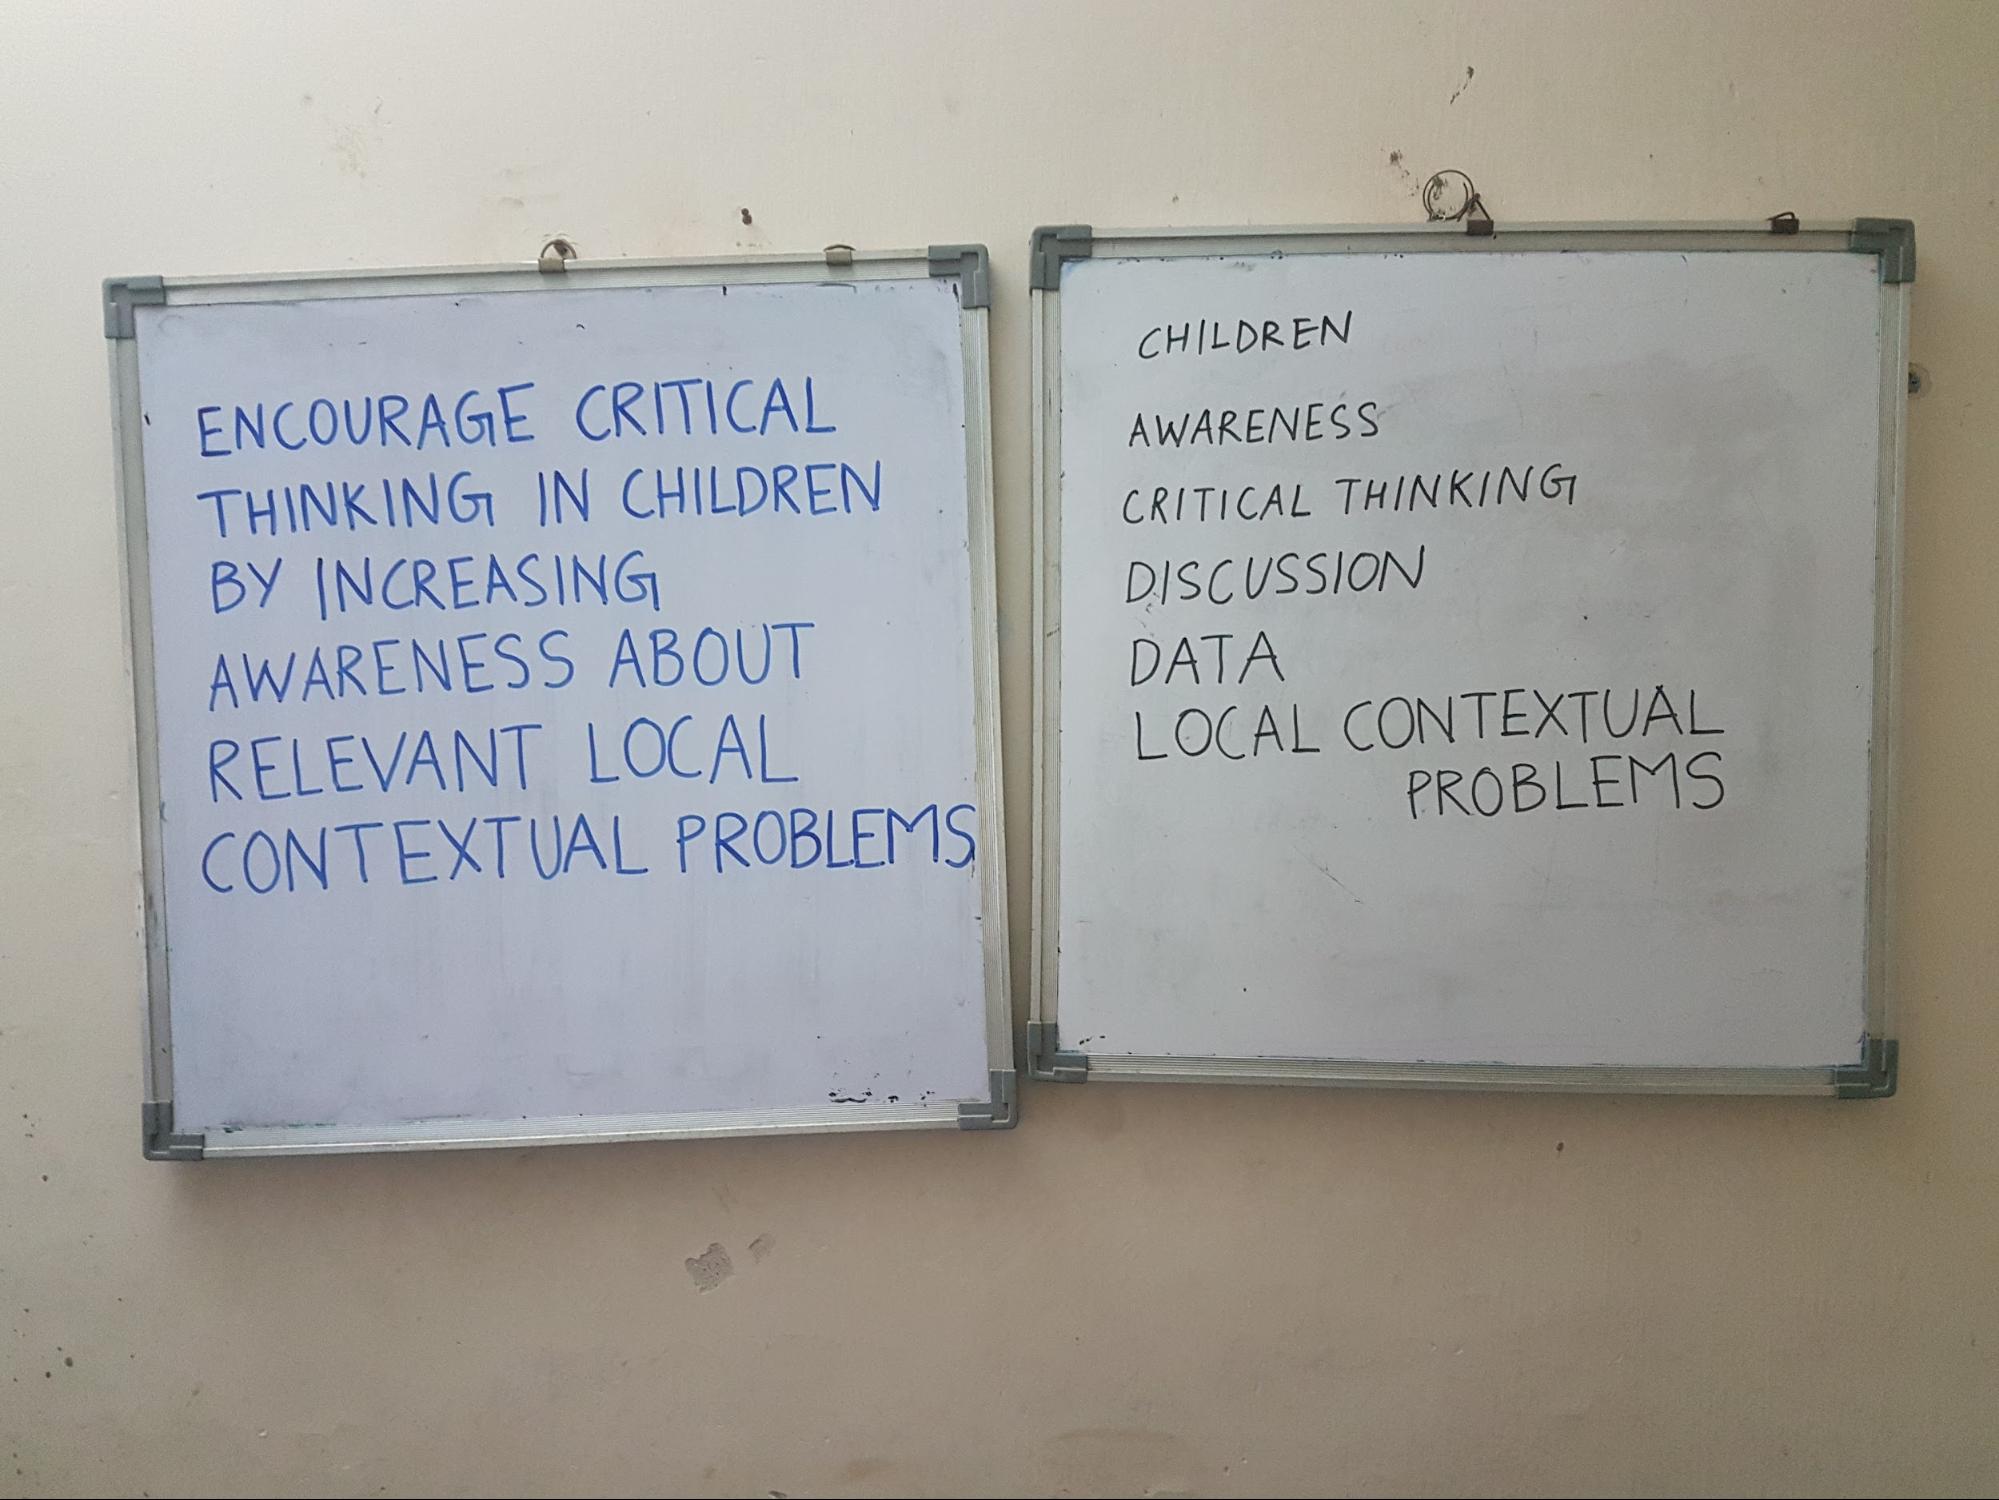 ENCOURAGE CRITICAL
THINKING IN CHILDREN
BY INCREASING
AWARENESS ABOUT
RELEVANT LOCAL
CONTEXTUAL PROBLEMS
CHILDREN
AWARENESS
CRITICAL THINKING
DISCUSSION
DATA
LOCAL CONTEXTUAL
PROBLEMS